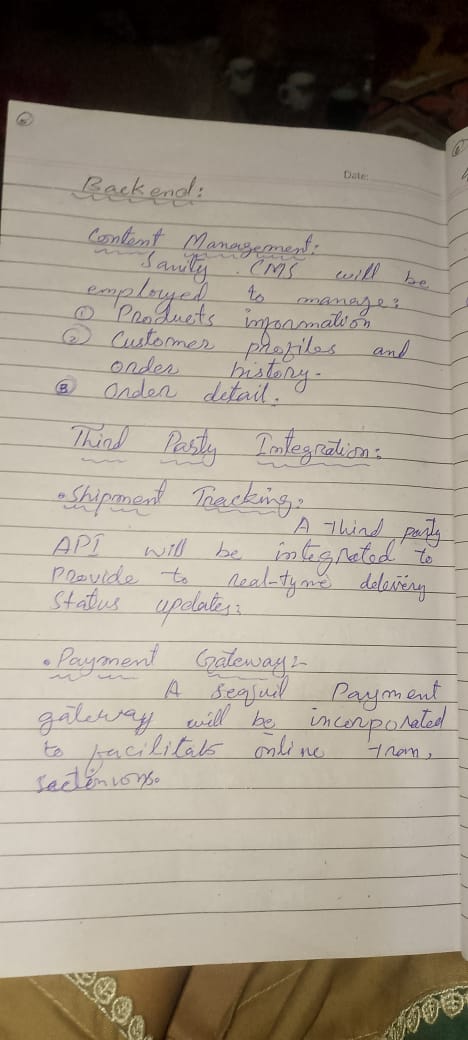 Date:
Backend:
Content Management:
Sanity CMS will be
employed to manage:
① Products information
② Customer profiles and
order history.
③ Order detail.
Third Party Integration:
• Shipment Tracking:
A third party
API will be integrated to
Provide to real-tyme delevery
Status updates:
• Payment Gateway:-
A seqsuil Payment
gateway will be incorporated
to facilitats online tran,
sactenions.